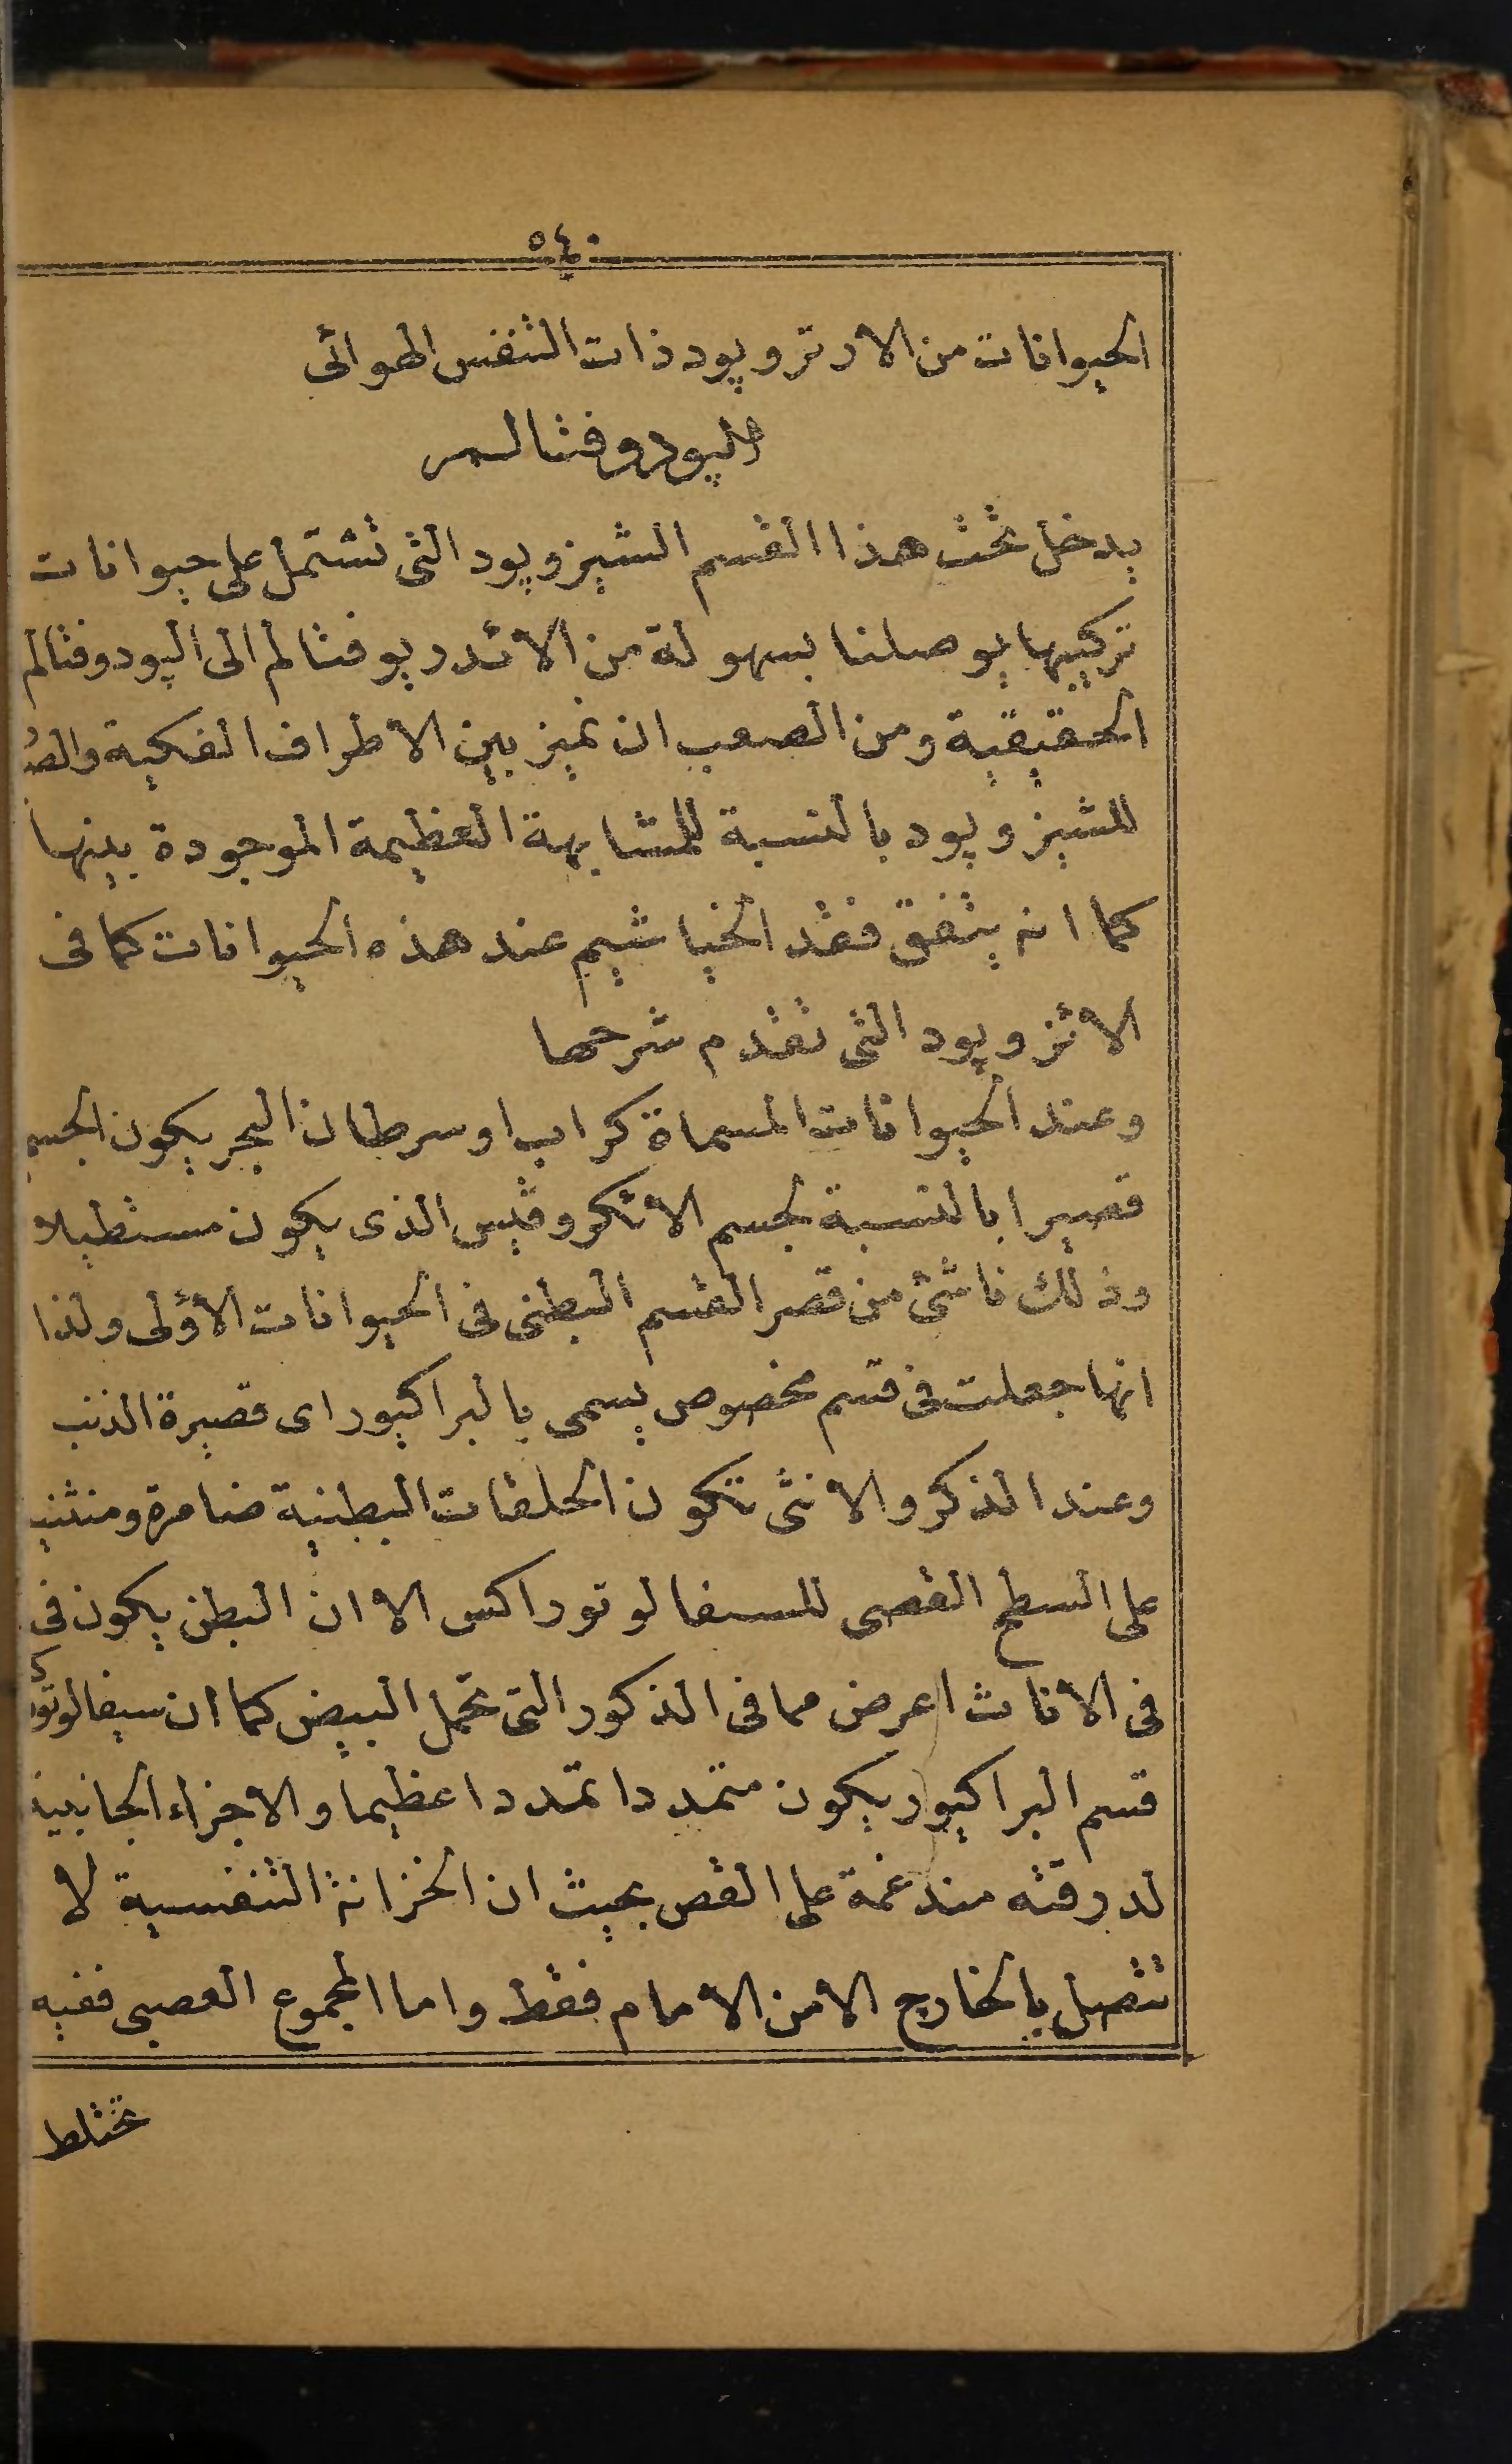 ٥٤٠
الحيوانات من الارتروپود ذات التنفس الهوائى
الپودوفثالم
يدخل تحت هذا القسم الشيزوپود التى تشتمل على حيوانات
تركيبها يوصلنا بسهولة من الائدريوفثالم الى الپودوفثالم
الحقيقية ومن الصعب ان نميز بين الاطراف الفكية
للشيزوپود بالنسبة للمشابهة العظيمة الموجودة بينها
كما انه يتفق فقد الخياشيم عند هذه الحيوانات كما فى
الاتزوپود التى تقدم شرحها
وعند الحيوانات المسماة كراب او سرطان البحر يكون الجسم
قصيرا بالنسبة لجسم الاتكروڤيس الذى يكون مستطيلا
وذلك ناشئ من قصر القسم البطنى فى الحيوانات الأولى ولذا
انها جعلت فى قسم مخصوص يسمى بالبراكيور اى قصيرة الذنب
وعند الذكر والانثى تكون الحلقات البطنية ضامرة
على السطح القصى للسفالوتوراكس الا ان البطن يكون فى
فى الاناث اعرض مما فى الذكور التى تحمل البيض كما ان سيفالوتورك
قسم البراكيور يكون متمددا تمددا عظيما والاجزاء الجانبية
لدرقته مندغمة على القص بحيث ان الخزانة التنفسية لا
تتصل بالخارج الا من الامام فقط واما المجموع العصبى ففيه
تختلط